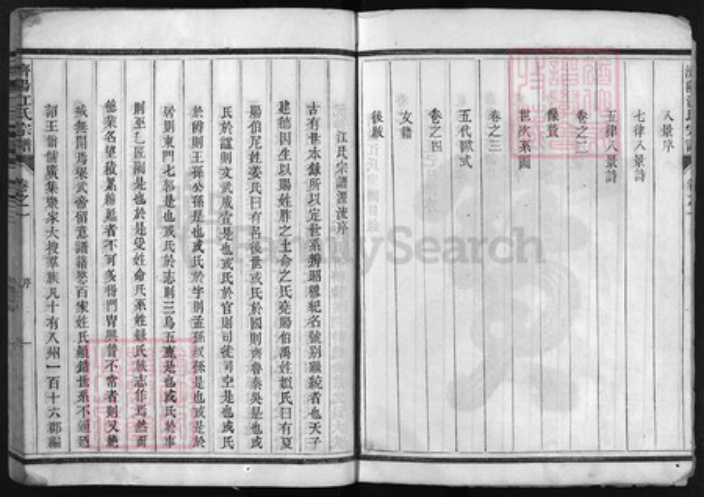 八景序
七律八景詩
五律八景詩
卷之二
像贊
世次系圖
卷之三
五代歐式
卷之四
文籍
後跋
江氏宗譜源流序
古有世本錄所以定世系辨昭穆紀名號別嫡統者也天子
建德因生以賜姓胙之土命之氏堯賜伯禹姓姒氏曰有夏
賜伯尼姓姜氏曰有呂後世或氏於國則齊魯秦吳是也或
氏於諡則文武成宣是也或氏於官則司徒司空是也或氏
於爵則王孫公孫是也或氏於字則孟孫叔孫是也或是於
居則東門七郭是也或氏於志則三烏五鹿是也或氏於事
則巫乙匠陶是也於是受姓命氏系姓錄氏族志作焉然而
德業名望積累綿延者不可多得門胄興替不常者則又絕
城無聞焉梁武帝留意譜籍詔百家姓氏
詔王僧孺廣集衆家大搜羣族凡十有八州一百十六郡編
濟陽江氏宗譜
卷之一
序
一
FamilySearch